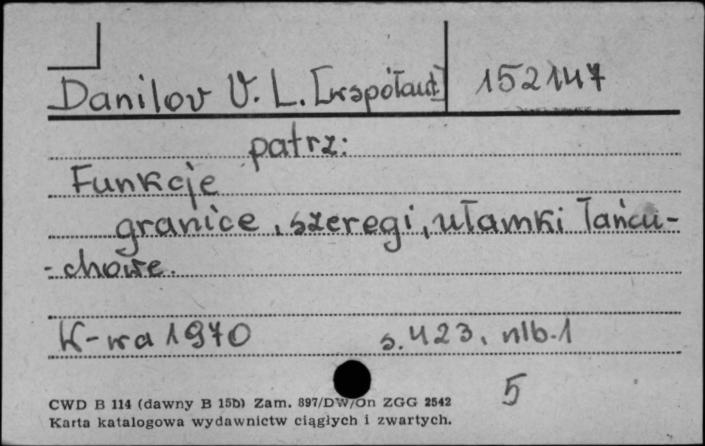 Danilov V. L. [współaut] 152147
patrz:
Funkcje
granice, szeregi, ułamki łańcu-
-chowe.
K-wa 1970 s. 423, nlb. 1
5
CWD B 114 (dawny B 15b) Zam. 897/DW/On ZGG 2542
Karta katalogowa wydawnictw ciągłych i zwartych.